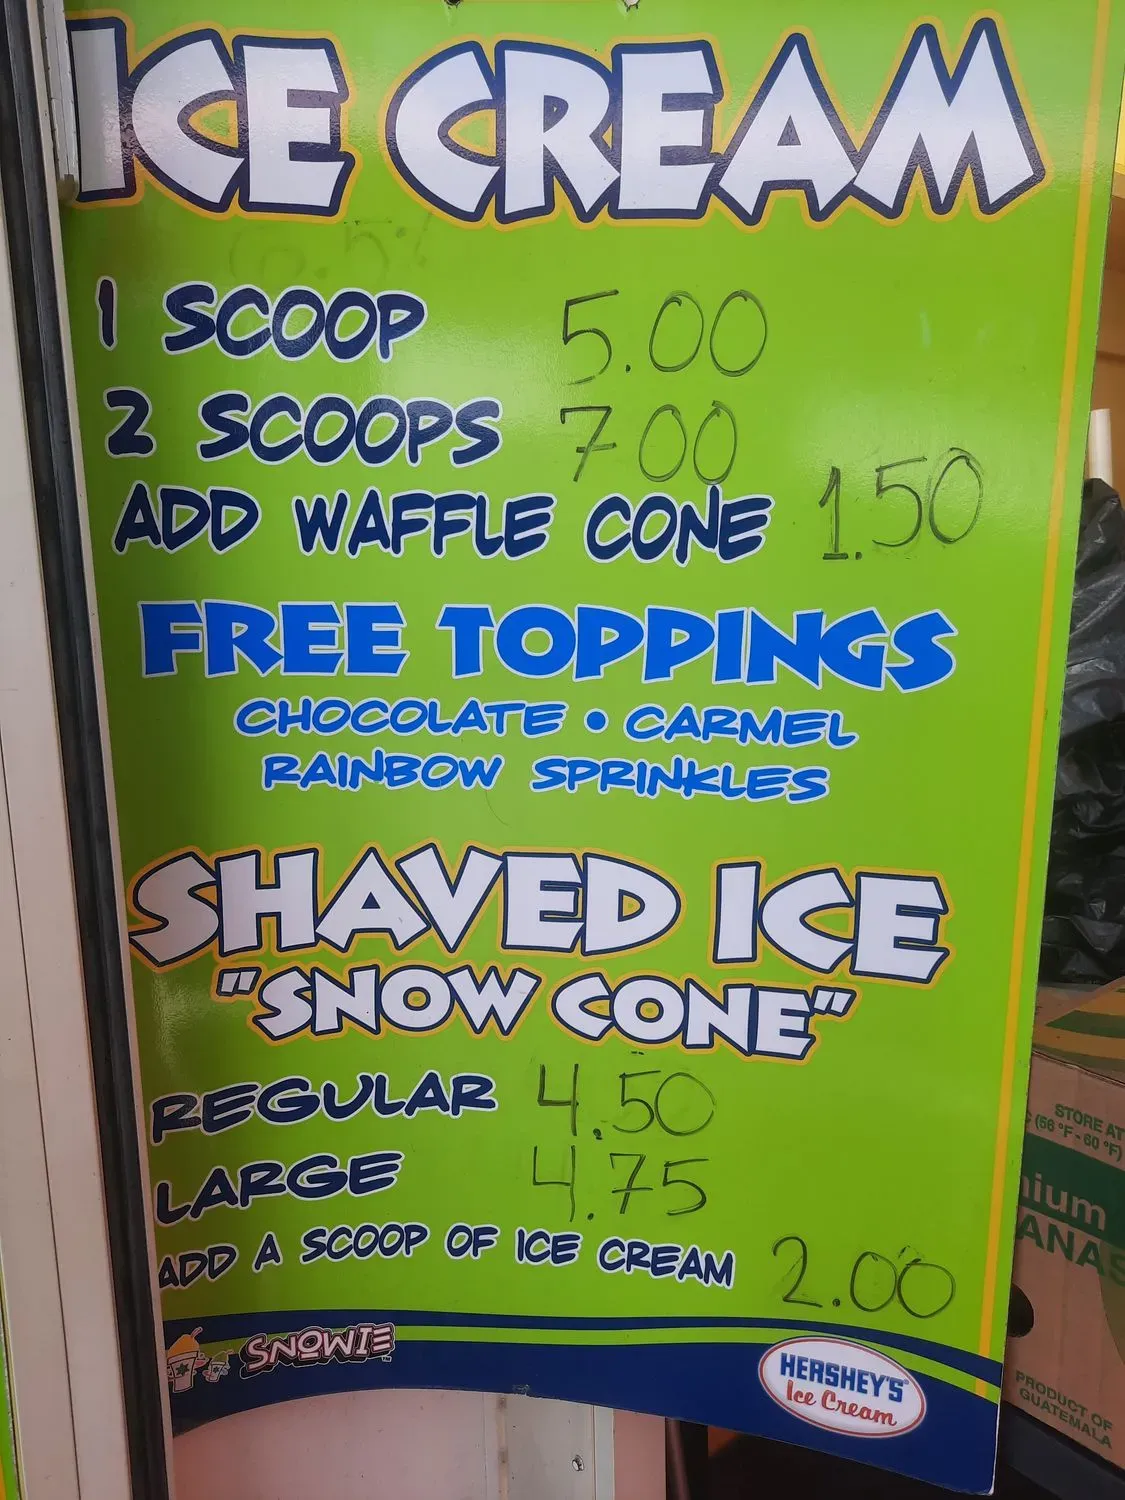 ICE CREAM
1 SCOOP 5.00
2 SCOOPS 7.00
ADD WAFFLE CONE 1.50
FREE TOPPINGS
CHOCOLATE • CARMEL
RAINBOW SPRINKLES
SHAVED ICE
"SNOW CONE"
REGULAR 4.50
LARGE 4.75
ADD A SCOOP OF ICE CREAM 2.00
SNOWIE™
HERSHEY'S
Ice Cream
STORE AT
(56 °F - 60 °F)
PRODUCT OF
GUATEMALA